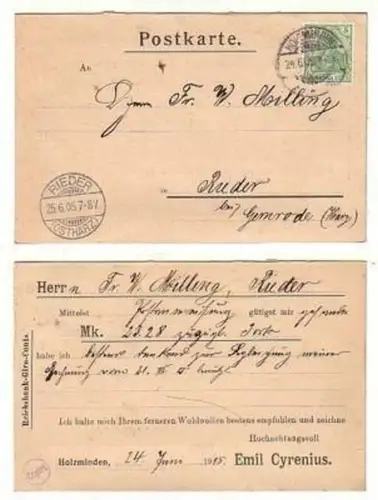 Postkarte.
An
Herrn Fr. W. Milling
in Rieder
bei Gernrode (Harz)
RIEDER
25.6.05.7-8V.
(OSTHARZ)
Herrn Fr. W. Milling, Rieder
Mittelst Postanweisung gütigst mir gesandte
Mk. 23.28 zuzügl. Porto
habe ich bestens dankend zur Begleichung meiner
Rechnung vom
Ich halte mich Ihrem ferneren Wohlwollen bestens empfohlen und zeichne
Hochachtungsvoll
Holzminden, 24 Juni 1905 Emil Cyrenius.
Reichsbank-Giro-Conto.